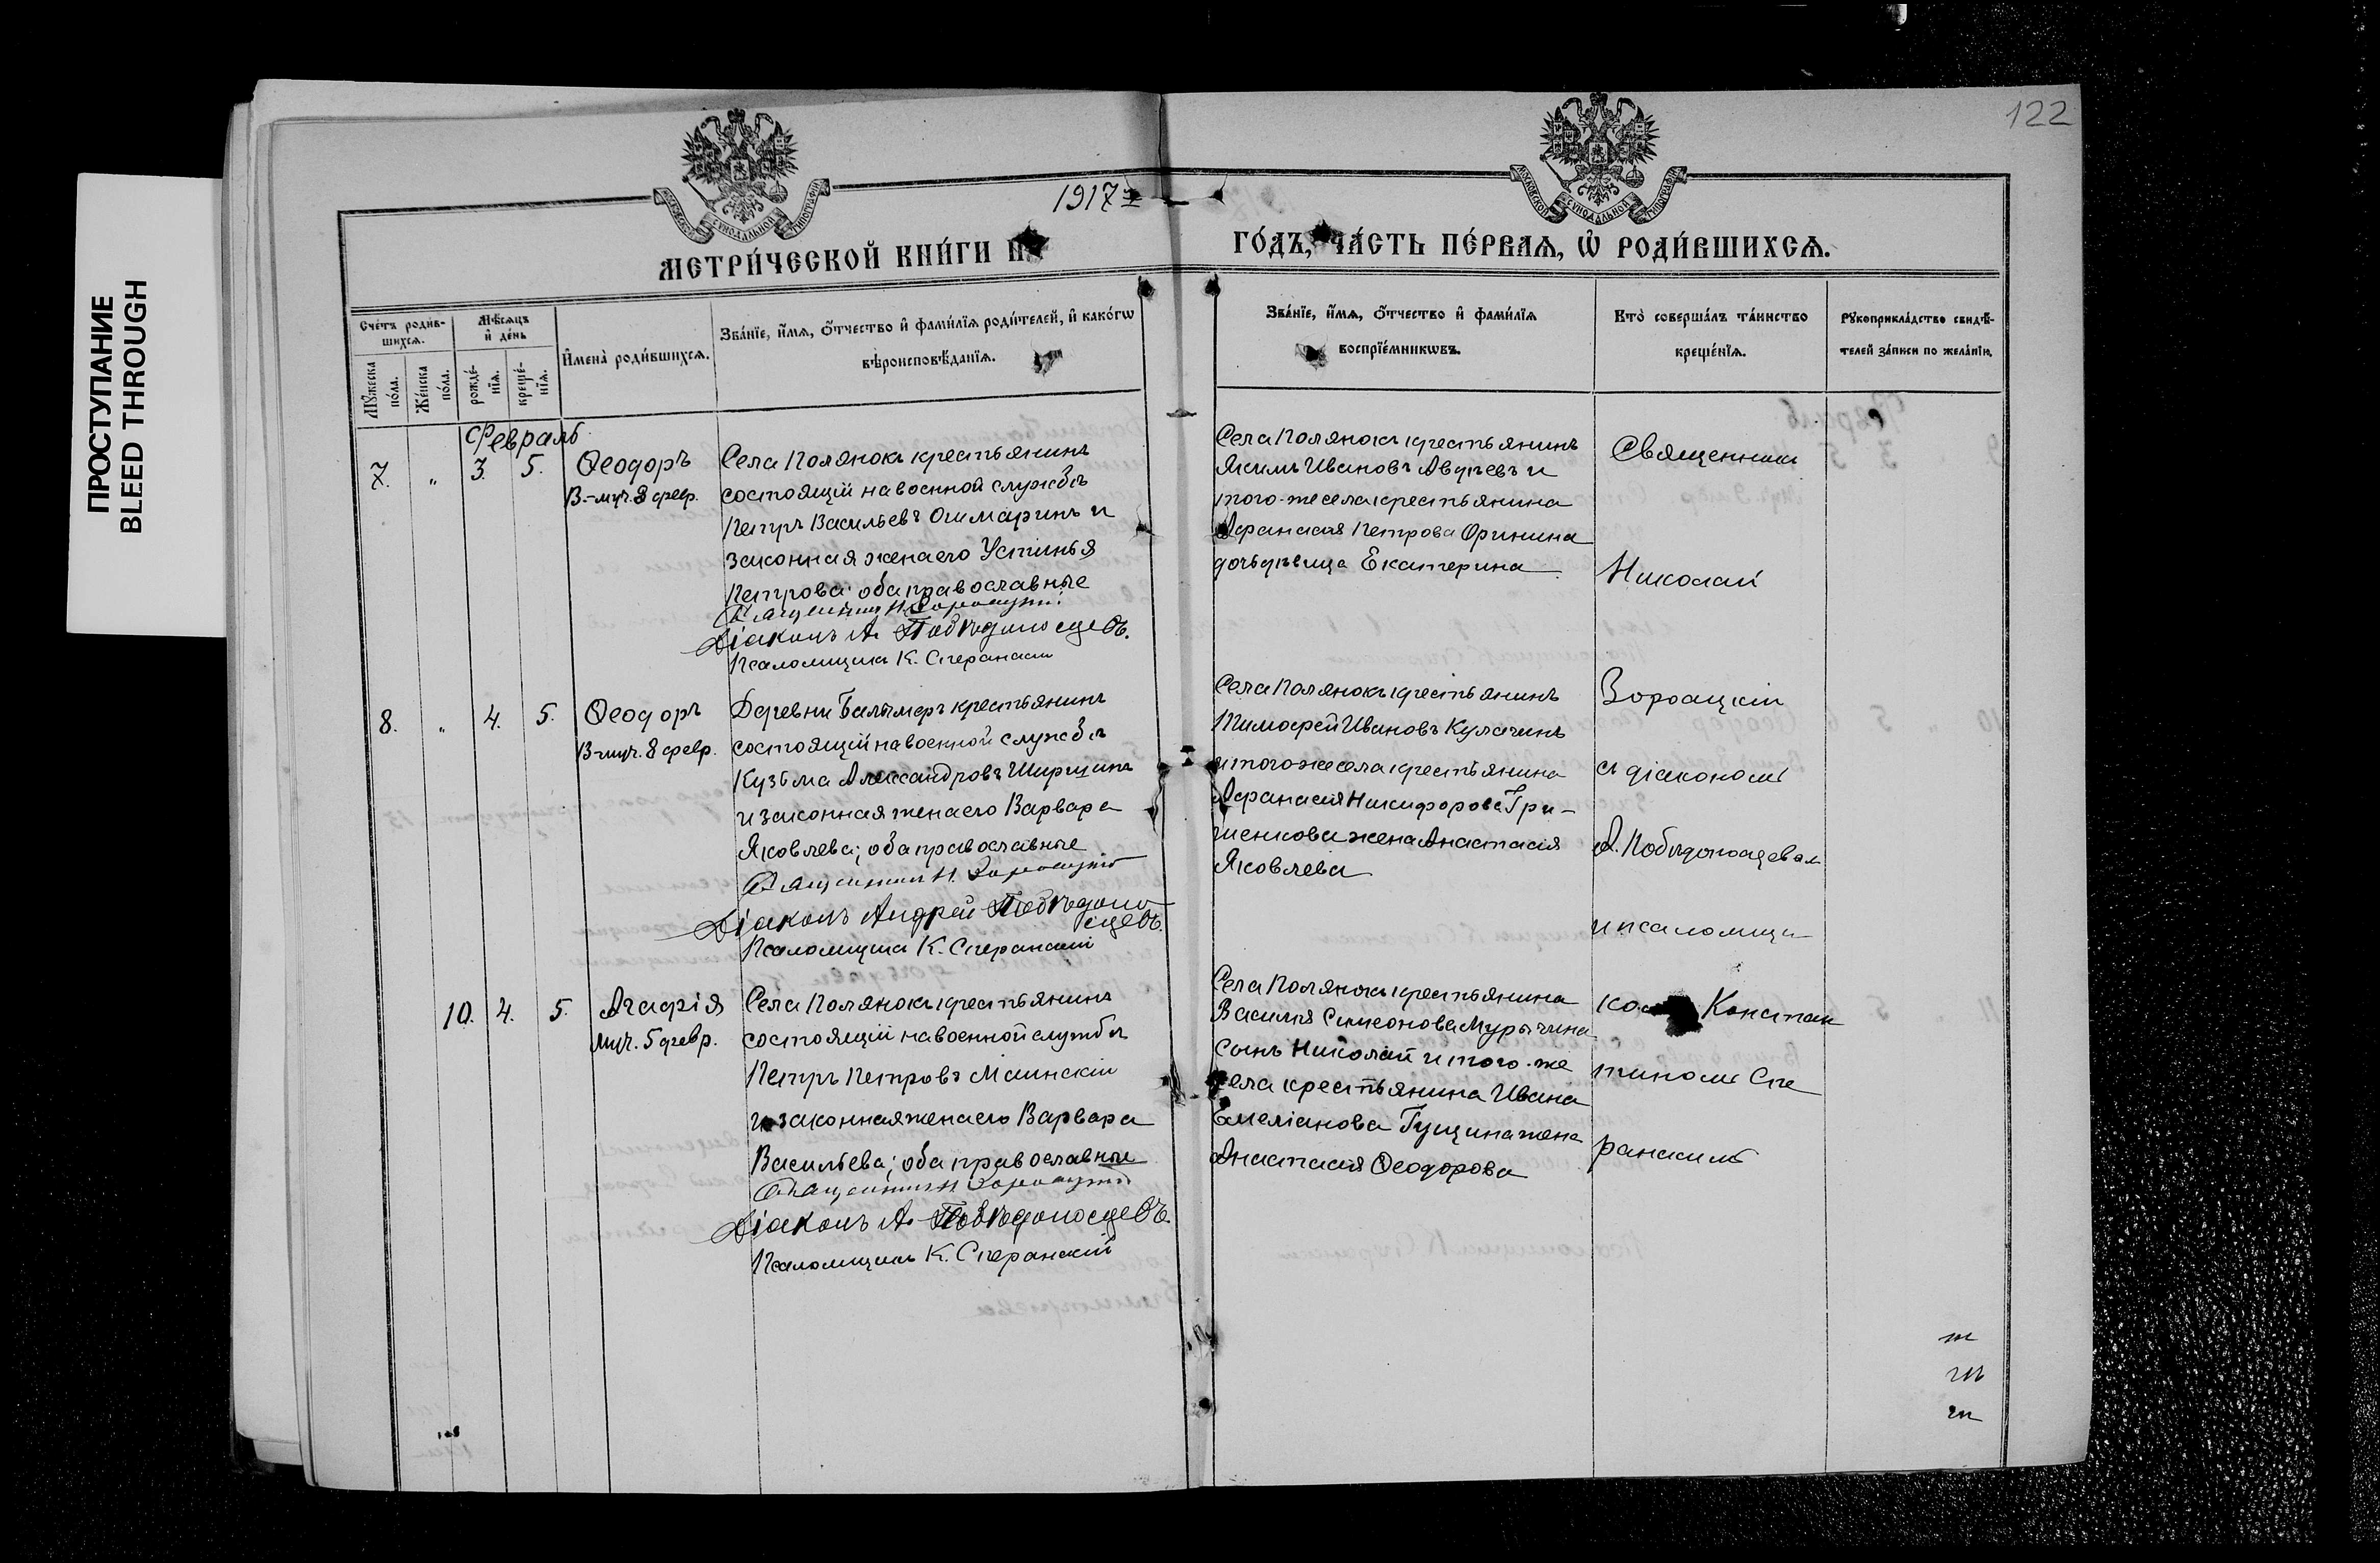 ПРОСТУПАНИЕ
BLEED THROUGH
122
МОСКОВСКОЙ СѴНОДАЛЬНОЙ ТИПОГРАФІИ
МОСКОВСКОЙ СѴНОДАЛЬНОЙ ТИПОГРАФІИ
1917 г
МЕТРИ́ЧЕСКОЙ КНИ́ГИ НА
ГО́ДЪ, ЧА́СТЬ ПЕ́РВАѦ, Ѽ РОДИ́ВШИХСѦ.
Сче́тъ роди́в-
шихсѧ.
Мꙋ́жеска по́ла.
Же́нска по́ла.
Мѣ́сѧцъ и҆ де́нь
рожде́-нїѧ.
креще́-нїѧ.
И҆мена̀ роди́вшихсѧ.
Зва́нїе, и҆́мѧ, ѻ҆́тчество и҆ фами́лїѧ роди́телей, и҆ како́гѡ
вѣроисповѣ́данїѧ.
Зва́нїе, и҆́мѧ, ѻ҆́тчество и҆ фами́лїѧ
воспрїе́мникѡвъ.
Кто̀ соверша́лъ та́инство
креще́нїѧ.
Рꙋкоприкла́дство свидѣ́-
телей за́писи по жела́нїю.
Февраль
7. " 3. 5. Ѳеодоръ
В.-муч. 8 февр.
Села Полянокъ крестьянинъ
состоящій на военной службѣ
Петръ Васильевъ Ошмаринъ и
законная жена его Устинья
Петрова оба православные
Священникъ Н.
Діаконъ А. Побѣдоносцевъ.
Псаломщикъ К. Сперанскій
Села Полянокъ крестьянинъ
Якимъ Ивановъ Авдѣевъ и
того-же села крестьянина
Афанасія Петрова Оринина
дочь дѣвица Екатерина
8. " 4. 5. Ѳеодоръ
В-муч. 8 февр.
Деревни Балымеръ крестьянинъ
состоящій на военной службѣ
Кузьма Александровъ Ширшинъ
и законная жена его Варвара
Яковлева; оба православные
Священникъ Н.
Діаконъ Андрей Побѣдоно
сцевъ.
Псаломщикъ К. Сперанскій
Села Полянокъ крестьянинъ
Тимофей Ивановъ Кулагинъ
и того же села крестьянина
Афанасія Никифорова Гри-
шенкова жена Анастасія
Яковлева
10. 4. 5. Агафія
муч. 5 февр.
Села Полянокъ крестьянинъ
состоящій на военной службѣ
Петръ Петровъ Маинскій
и законная жена его Варвара
Васильева; оба православные
Священникъ Н.
Діаконъ А. Побѣдоносцевъ.
Псаломщикъ К. Сперанскій
Села Полянокъ крестьянина
Василія Симеонова Мурычина
сынъ Николай и того-же
села крестьянина Ивана
Емеліанова Гущина жена
Анастасія Ѳеодорова
Священникъ
Николай
съ діакономъ
А. Побѣдоносцевымъ
и псаломщи
комъ Констан
тиномъ Спе
ранскимъ